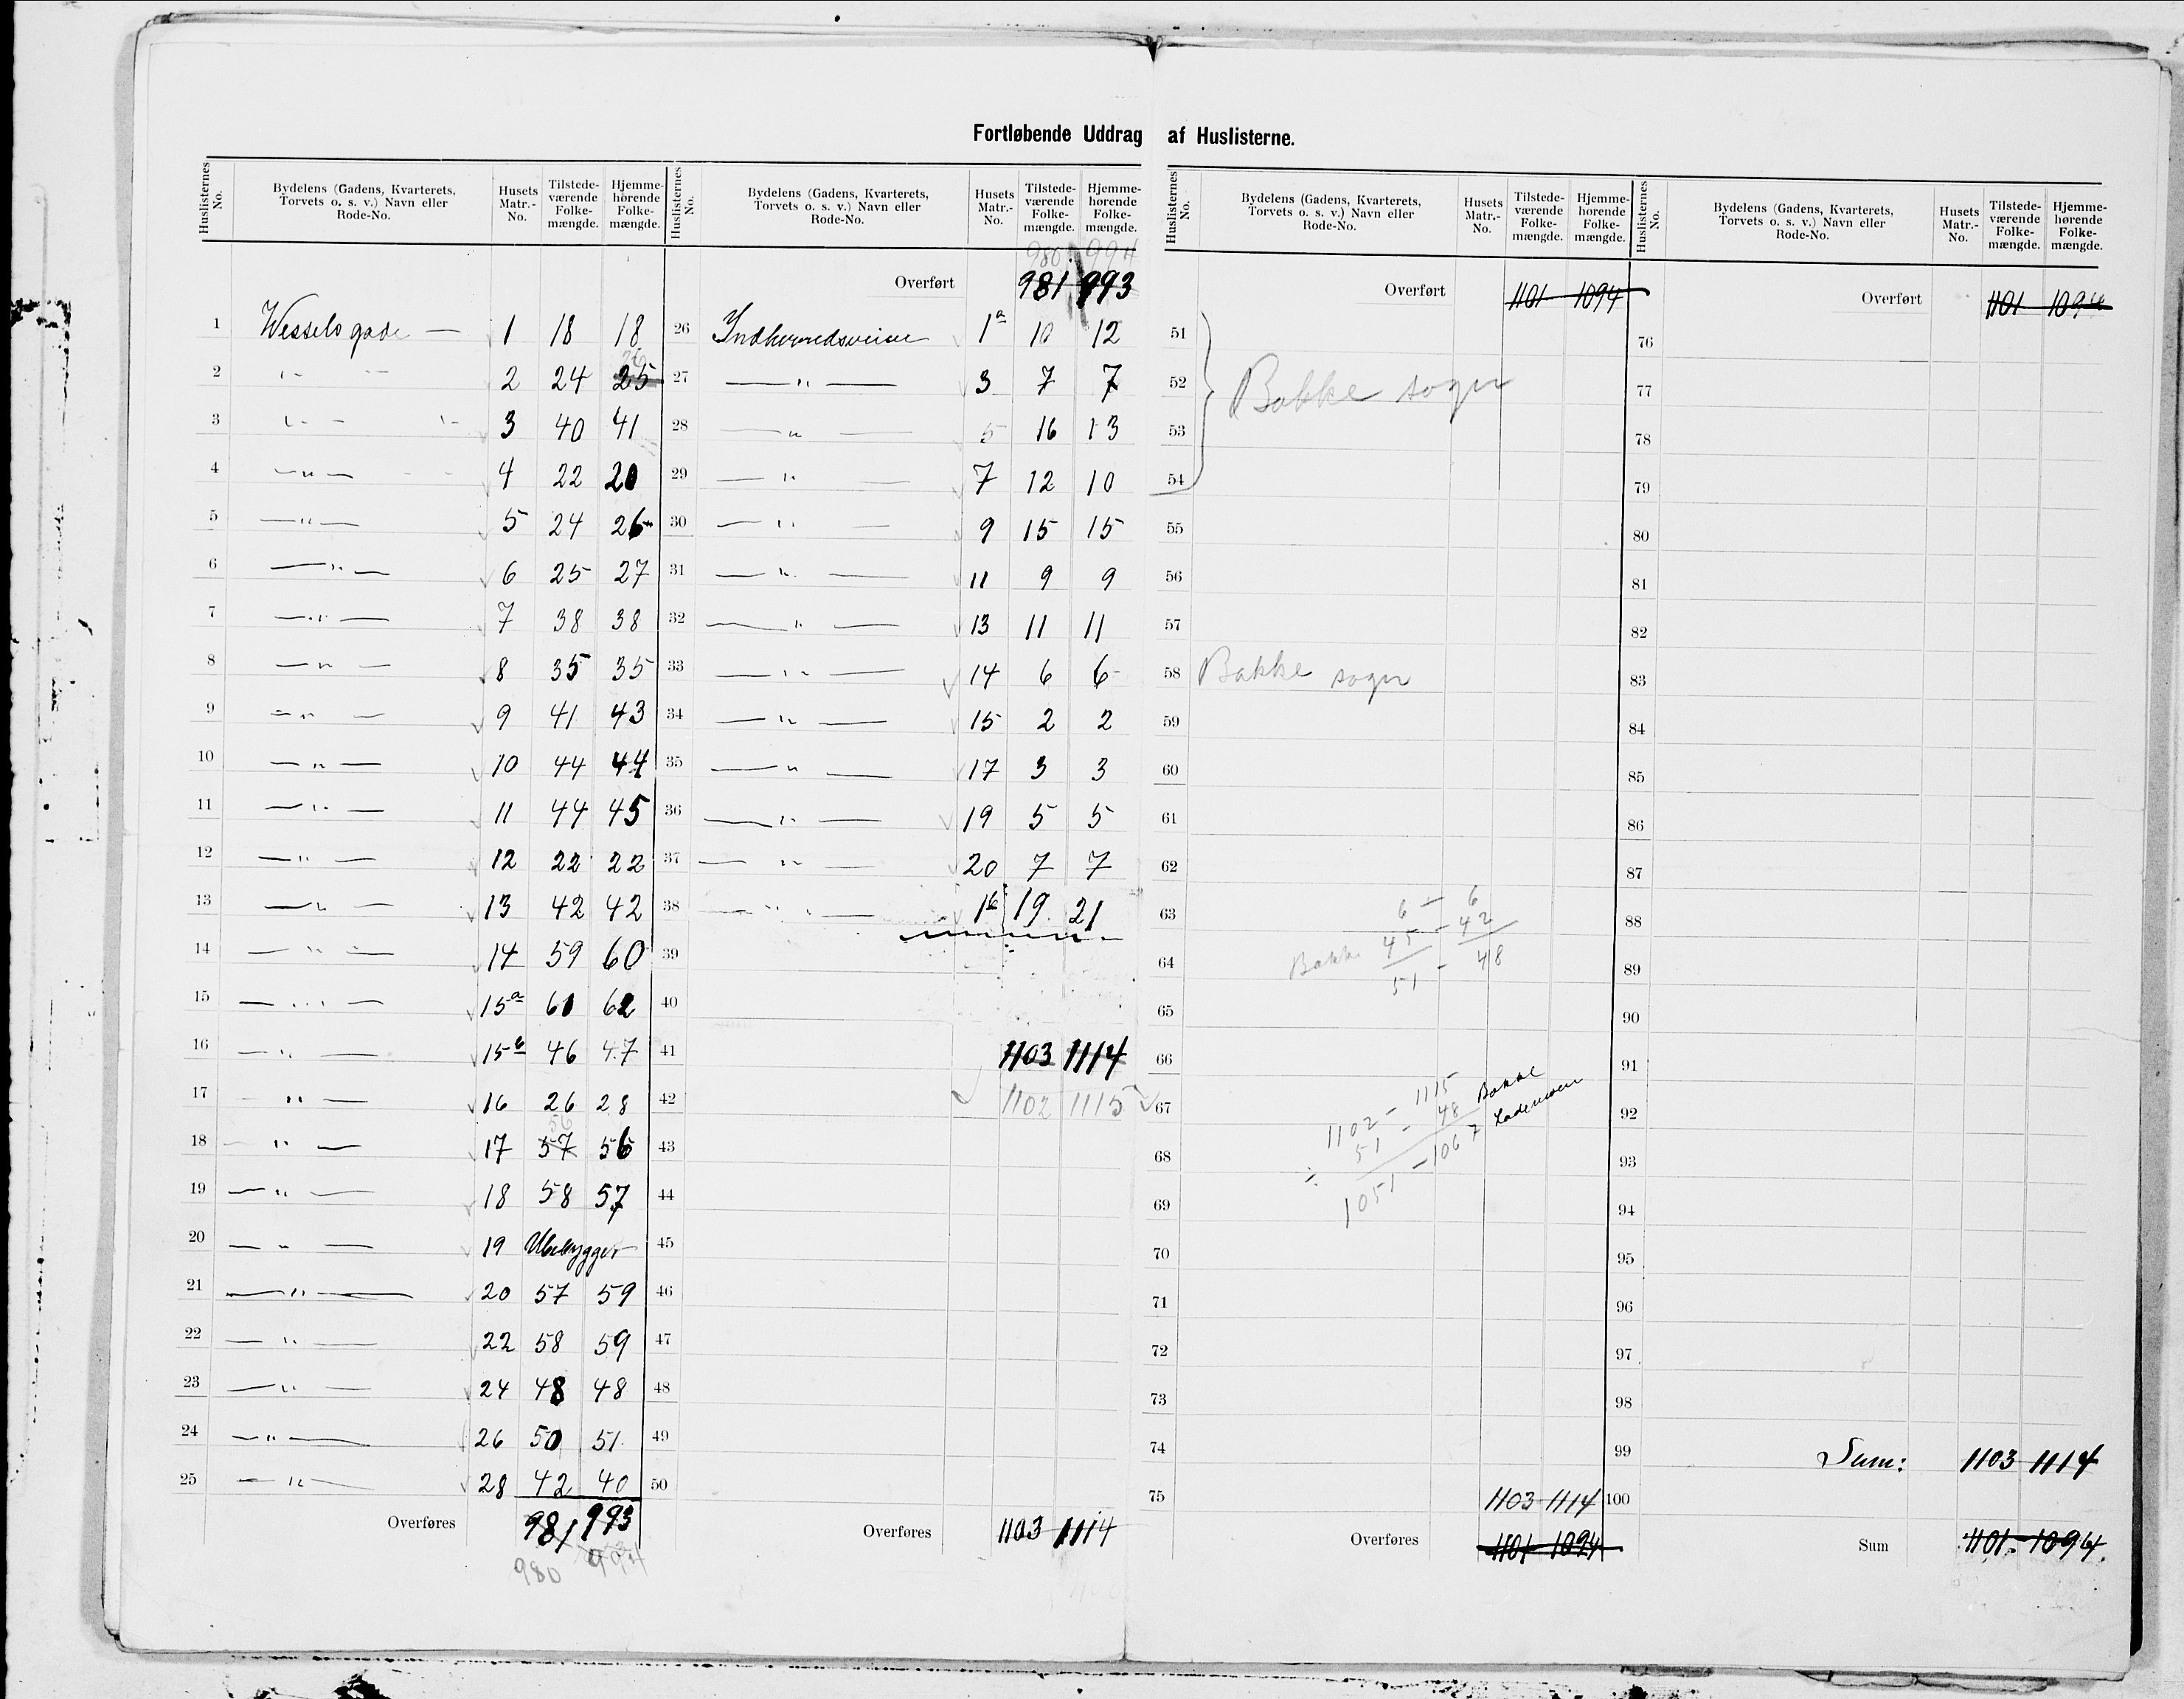 Fortløbende Uddrag af Huslisterne.
Huslisternes No. Bydelens (Gadens, Kvarterets, Torvets o. s. v.) Navn eller Rode-No. Husets Matr.-No. Tilstede-værende Folke-mængde. Hjemme-hørende Folke-mængde.
1 Wessels gade — 1 18 18
2 " 2 24 25 26
3 " 3 40 41
4 — " — 4 22 20
5 — " — 5 24 26
6 — " — 6 25 27
7 — " — 7 38 38
8 — " — 8 35 35
9 — " — 9 41 43
10 — " — 10 44 44
11 — " — 11 44 45
12 — " — 12 22 22
13 — " — 13 42 42
14 — " — 14 59 60
15 — " — 15a 60 62
16 — " — 15b 46 47
17 — " — 16 26 28
18 — " — 17 57 56 56
19 — " — 18 58 57
20 — " — 19 Ubebygget
21 — " — 20 57 59
22 — " — 22 58 59
23 — " — 24 48 48
24 — " — 26 50 51
25 — " — 28 42 40
Overføres 981 993
980 994
Huslisternes No. Bydelens (Gadens, Kvarterets, Torvets o. s. v.) Navn eller Rode-No. Husets Matr.-No. Tilstede-værende Folke-mængde. Hjemme-hørende Folke-mængde.
980 994
Overført 981 993
26 Indherredsveien 1a 10 12
27 — " — 3 7 7
28 — " — 5 16 13
29 — " — 7 12 10
30 — " — 9 15 15
31 — " — 11 9 9
32 — " — 13 11 11
33 — " — 14 6 6
34 — " — 15 2 2
35 — " — 17 3 3
36 — " — 19 5 5
37 — " — 20 7 7
38 — " — 1b 19 21
39
40
41 1103 1114
42 1102 1115
43
44
45
46
47
48
49
50
Overføres 1103 1114
Huslisternes No. Bydelens (Gadens, Kvarterets, Torvets o. s. v.) Navn eller Rode-No. Husets Matr.-No. Tilstede-værende Folke-mængde. Hjemme-hørende Folke-mængde.
Overført 1101 1094
51
52 Bakke sogn
53
54
55
56
57
58 Bakke sogn
59
60
61
62
6 — 6
63
Bakke 45 - 42
64
51 - 48
65
66
67
1102 - 1115
51 - 48 Bakke
1051 - 1067 Lademoen
68
69
70
71
72
73
74
75 1103 1114
Overføres 1101 1094
Huslisternes No. Bydelens (Gadens, Kvarterets, Torvets o. s. v.) Navn eller Rode-No. Husets Matr.-No. Tilstede-værende Folke-mængde. Hjemme-hørende Folke-mængde.
Overført 1101 1094
76
77
78
79
80
81
82
83
84
85
86
87
88
89
90
91
92
93
94
95
96
97
98
99 Sum: 1103 1114
100
Sum 1101 - 1094